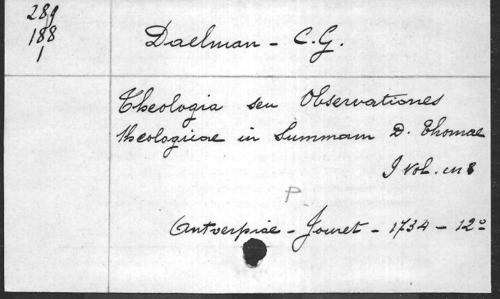 289
188
1
Daelman - C.G.
Theologia seu Observationes
theologicae in Summam D. Thomae
9 vol. in 8
P
Antverpiae - Jouret - 1734 - 12°